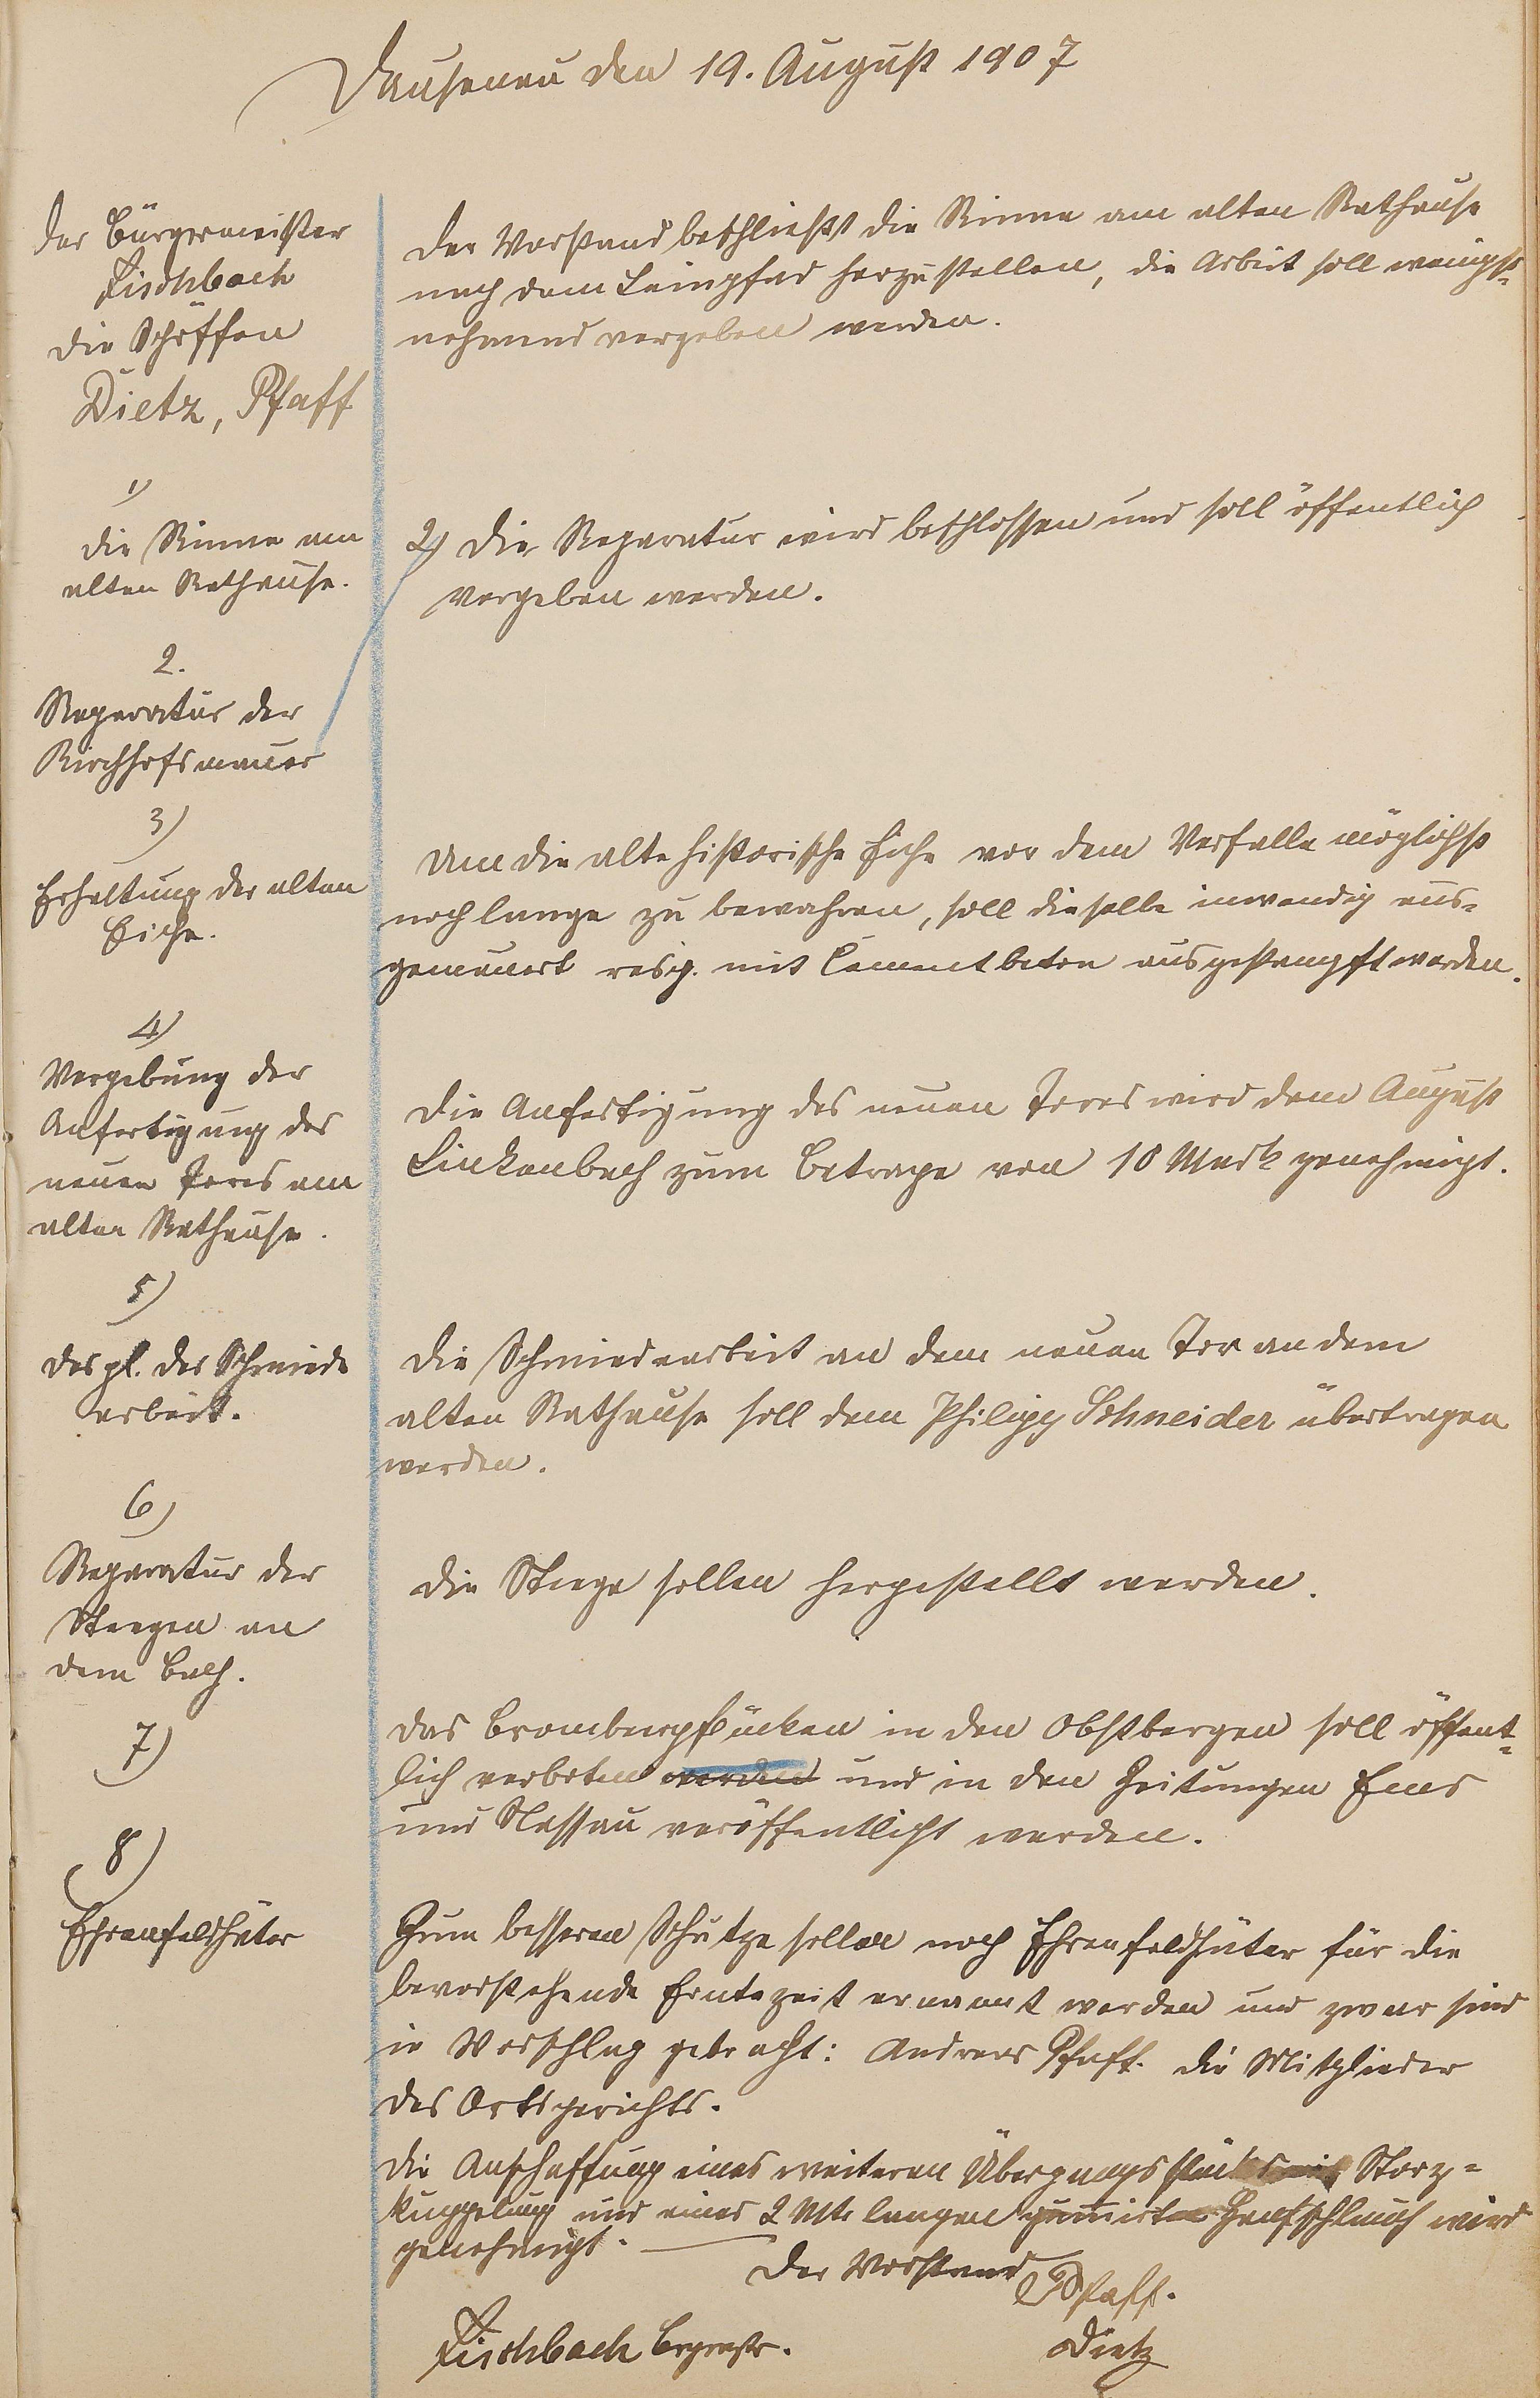 Dausenau den 19. August 1907
Der Bürgermeister
Fischbach
Die Schöffen
Dietz, Pfaff
Der Vorstand beschließt die Rinne am alten Rathause
nach dem Leinpfad herzustellen, die Arbeit soll wenigst-
nehmend vergeben werden.
1)
Die Rinne am
alten Rathause.
2) Die Reparatur wird beschlossen und soll öffentlich
vergeben werden.
2.
Reparatur der
Kirchhofsmauer
3)
Erhaltung der alten
Eiche.
Um die alte historische Eiche vor dem Verfalle möglichst
noch lange zu bewahren, soll dieselbe inwendig aus-
gemauert resp. mit Cementbeton ausgestampft werden.
4)
Vergebung der
Anfertigung des
neuen Tores am
alten Rathause.
Die Anfertigung des neuen Tores wird dem August
Linkenbach zum Betrage von 10 Mark genehmigt.
5)
Desgl. der Schmiede
arbeit.
Die Schmiedearbeit an dem neuen Tor an dem
alten Rathause soll dem Philipp Schneider übertragen
werden.
6)
Reparatur der
Steegen an
dem Bach.
Die Steege sollen hergestellt werden.
7)
Das Brombeerpflücken in den Obstbergen soll öffent-
lich verboten werden und in den Zeitungen Ems
und Nassau veröffentlicht werden.
8)
Ehrenfeldhüter
Zum besseren Schutze sollen noch Ehrenfeldhüter für die
bevorstehende Erntezeit ernannt werden und zwar sind
in Vorschlag gebracht: Andreas Pfaff. die Mitglieder
des Ortsgerichts.
Die Anschaffung eines weiteren Übergangsstücks mit Storz-
kuppelung und eines 2 Mtr langen gummierten Hanfschlauch wird
genehmigt.
Der Vorstand
Pfaff.
Fischbach Bgrmstr.
Dietz